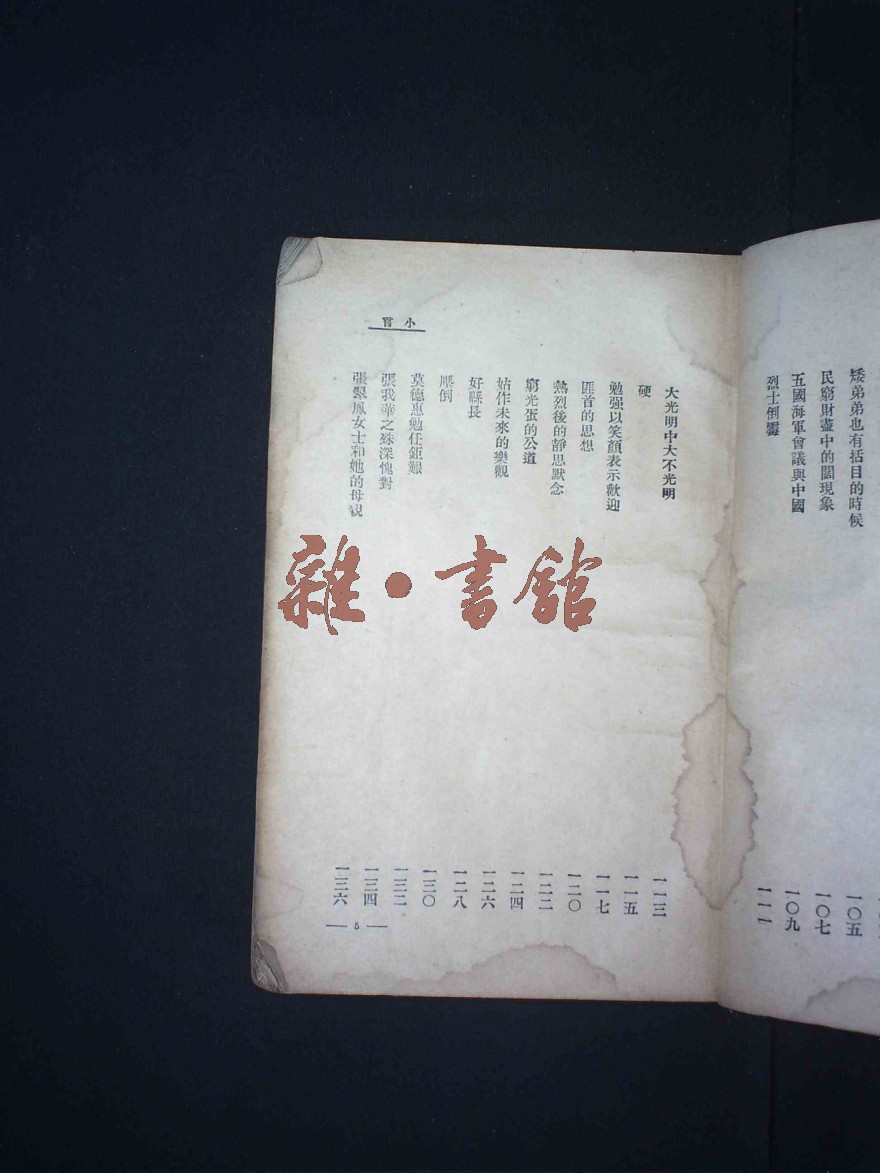 矮弟弟也有括目的時候
一〇五
民窮財盡中的闊現象
一〇七
五國海軍會議與中國
一〇九
烈士倒霉
一一一
小言
大光明中大不光明
一一三
硬
一一五
勉强以笑顏表示歡迎
一一七
匪首的思想
一二〇
熱烈後的靜思默念
一二二
窮光蛋的公道
一二四
姑作未來的樂觀
一二六
好縣長
一二八
壓倒
一三〇
莫德惠勉任鉅艱
一三二
張我華之殊深愧對
一三四
張翠鳳女士和她的母親
一三六
— 5 —
雜·書舘